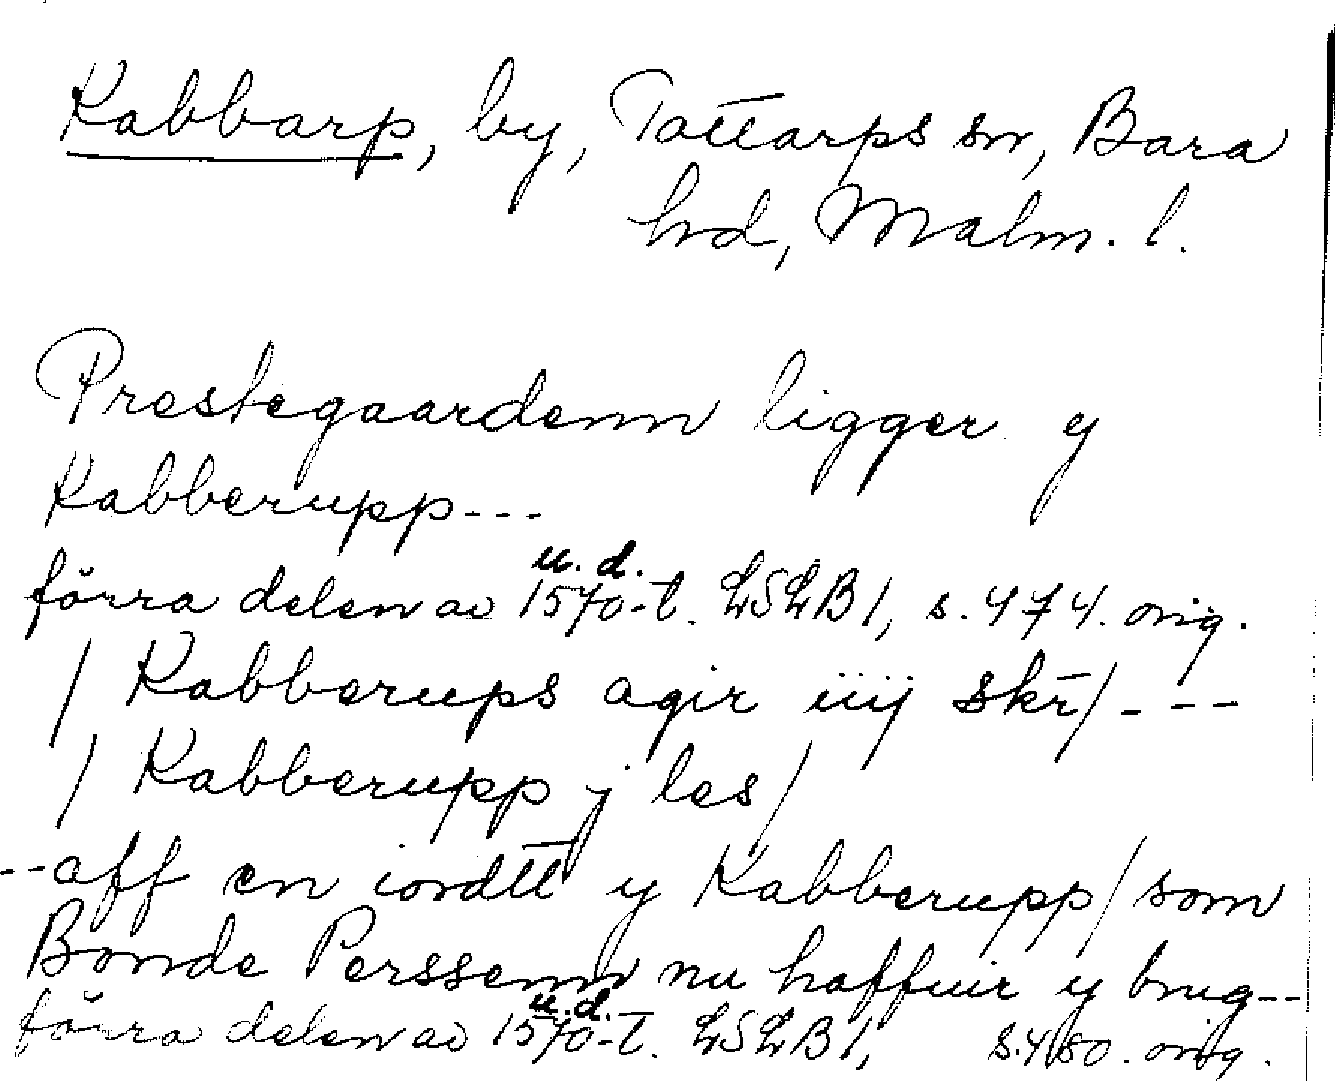 Kabbarp, by, Tottarps sn, Bara
hd, Malm. l.
Prestegaardenn ligger y
Kabberupp---
u.d.
förra delen av 1570-t. LSLB 1, s. 474. orig.
/ Kabberups agir iiij skr/ - - -
/ Kabberupp j les/
--aff en iordtt y Kabberupp/som
Bonde Perssenn nu haffuir y brug--
u.d.
förra delen av 1570-t. LSLB 1, s. 480. orig.